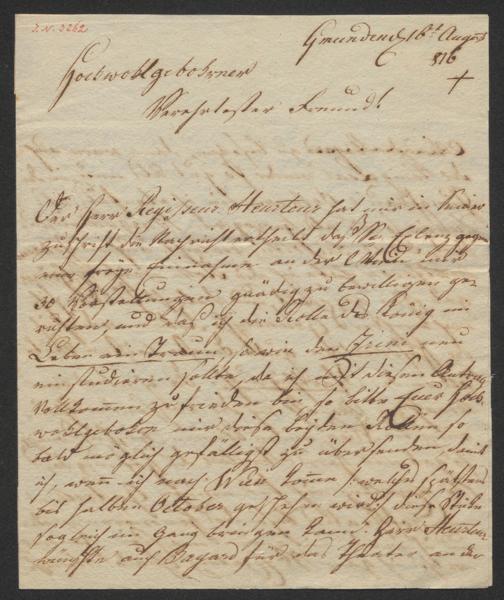 I.N. 3262
Gmunden d 16t August
816
Hochwohlgebohrner
Verehrtester Freund!
Der Herr Regisseur Heurteur hat mir in seiner
Zuschrift die Nachricht ertheilt daß Sr. Exlenz gegen
eine freye Einnahme an der Wien mir
30 Vorstellungen gnädig zu bewilligen ge-
ruhten, und daß ich die Rolle des König im
Leben ein Traum, so wie den Zrini neu
einstudieren sollte, da ich mit diesem
vollkommen zufrieden bin so bitte Euer Hoch-
wohlgebohrn mir diese beyden Rollen so
bald möglich gefälligst zu übersenden, damit
ich, wenn ich nach Wien komme, welches spätstens
bis halben October geschehen wird, diese Stücke
sogleich in Gang bringen kann. Herr Heurteur
wünschte auch Bayard für das Theater an der